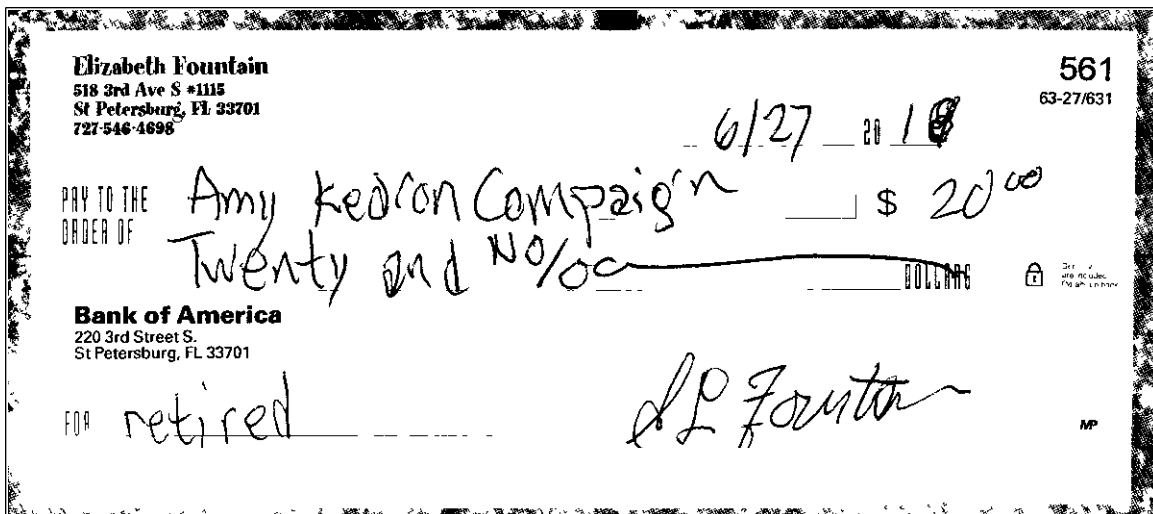 Elizabeth Fountain
518 3rd Ave S #1115
St Petersburg, FL 33701
727-546-4698
561
63-27/631
6/27 20 18
PAY TO THE ORDER OF Amy Kedron Campaign $ 20 00
Twenty and No/00 DOLLARS
Bank of America
220 3rd Street S.
St Petersburg, FL 33701
FOR retired
Fountain
MP